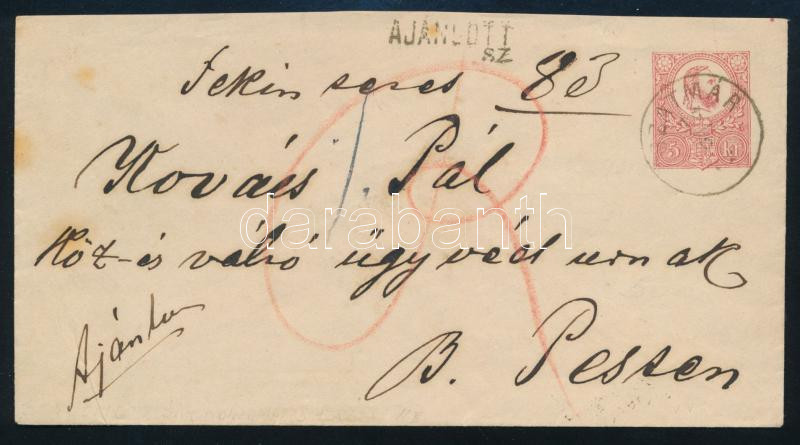 AJÁNLOTT
SZ
Tekin seres 83
Kovács Pál
Köz- és váltó ügyvéd urnak
B. Pesten
Ajánlva
5 kr
darabanth